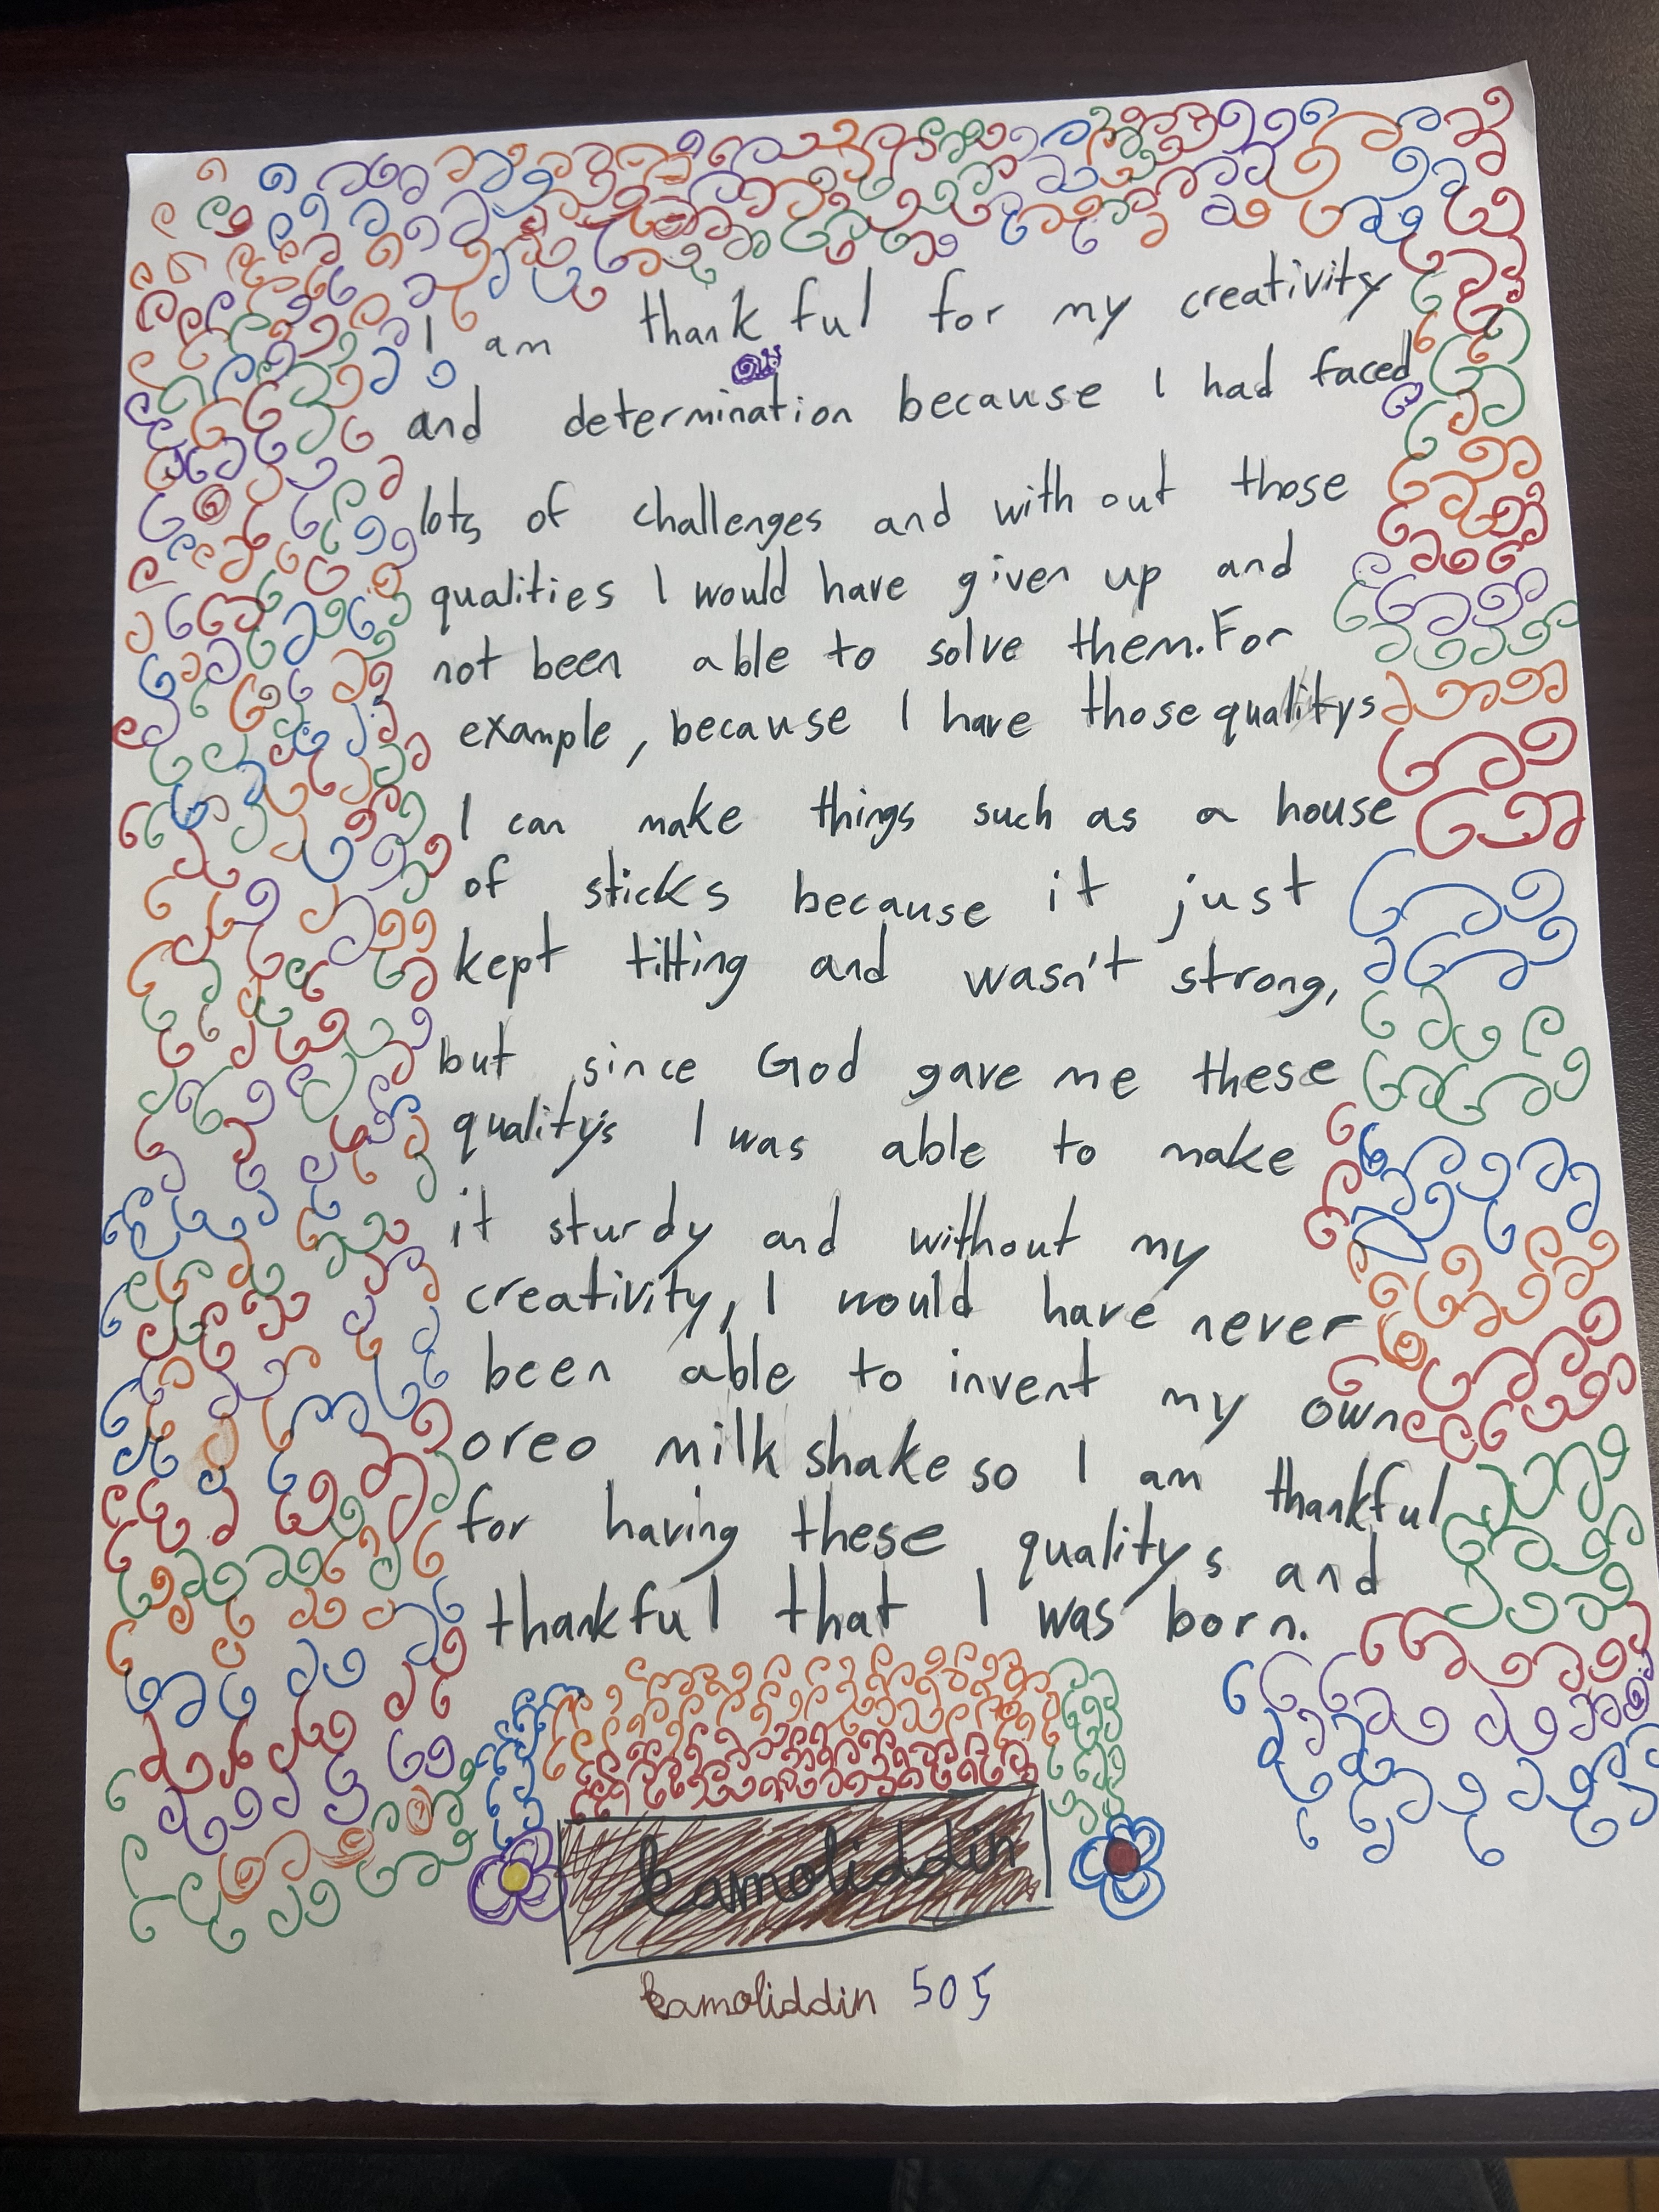 I am thankful for my creativity
and determination because I had faced
lots of challenges and with out those
qualities I would have given up and
not been able to solve them. For
example, because I have those qualitys
I can make things such as a house
of sticks because it just
kept tilting and wasn't strong,
but since God gave me these
quality's I was able to make
it sturdy and without my
creativity, I would have never
been able to invent my own
oreo milk shake so I am thankful
for having these qualitys and
thankful that I was born.
kamoliddin
kamoliddin 505